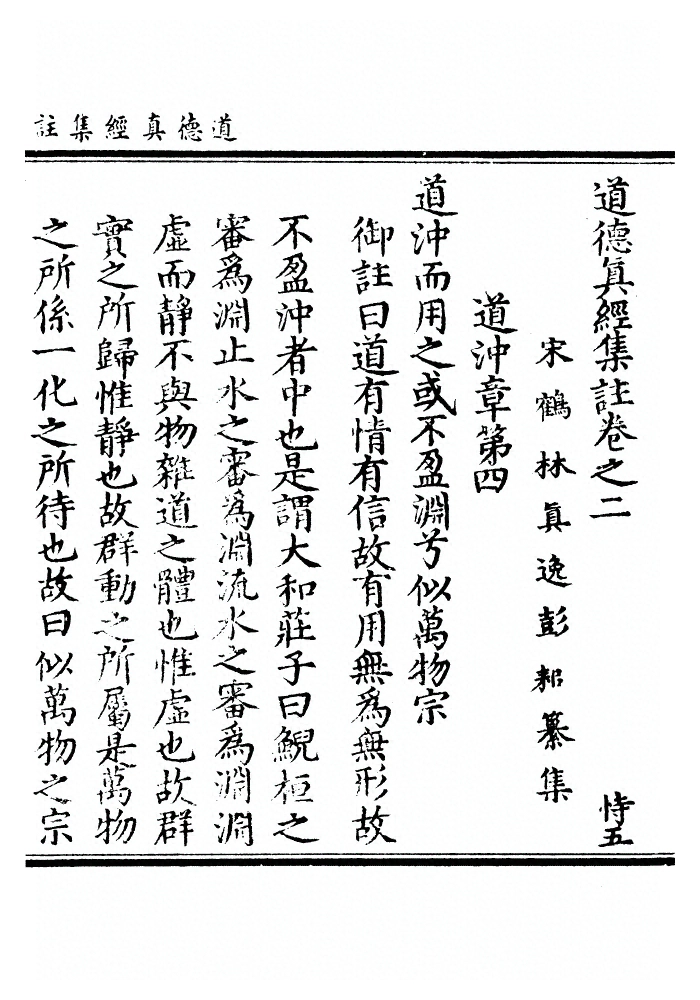 道德真經集註
道德眞經集註卷之二
恃五
宋鶴林眞逸彭耜纂集
道沖章第四
道沖而用之或不盈淵兮似萬物宗
御註曰道有情有信故有用無為無形故
不盈沖者中也是謂大和莊子曰鯢桓之
審爲淵止水之審爲淵流水之審爲淵淵
虛而靜不與物雜道之體也惟虛也故群
實之所歸惟靜也故群動之所屬是萬物
之所係一化之所待也故曰似萬物之宗